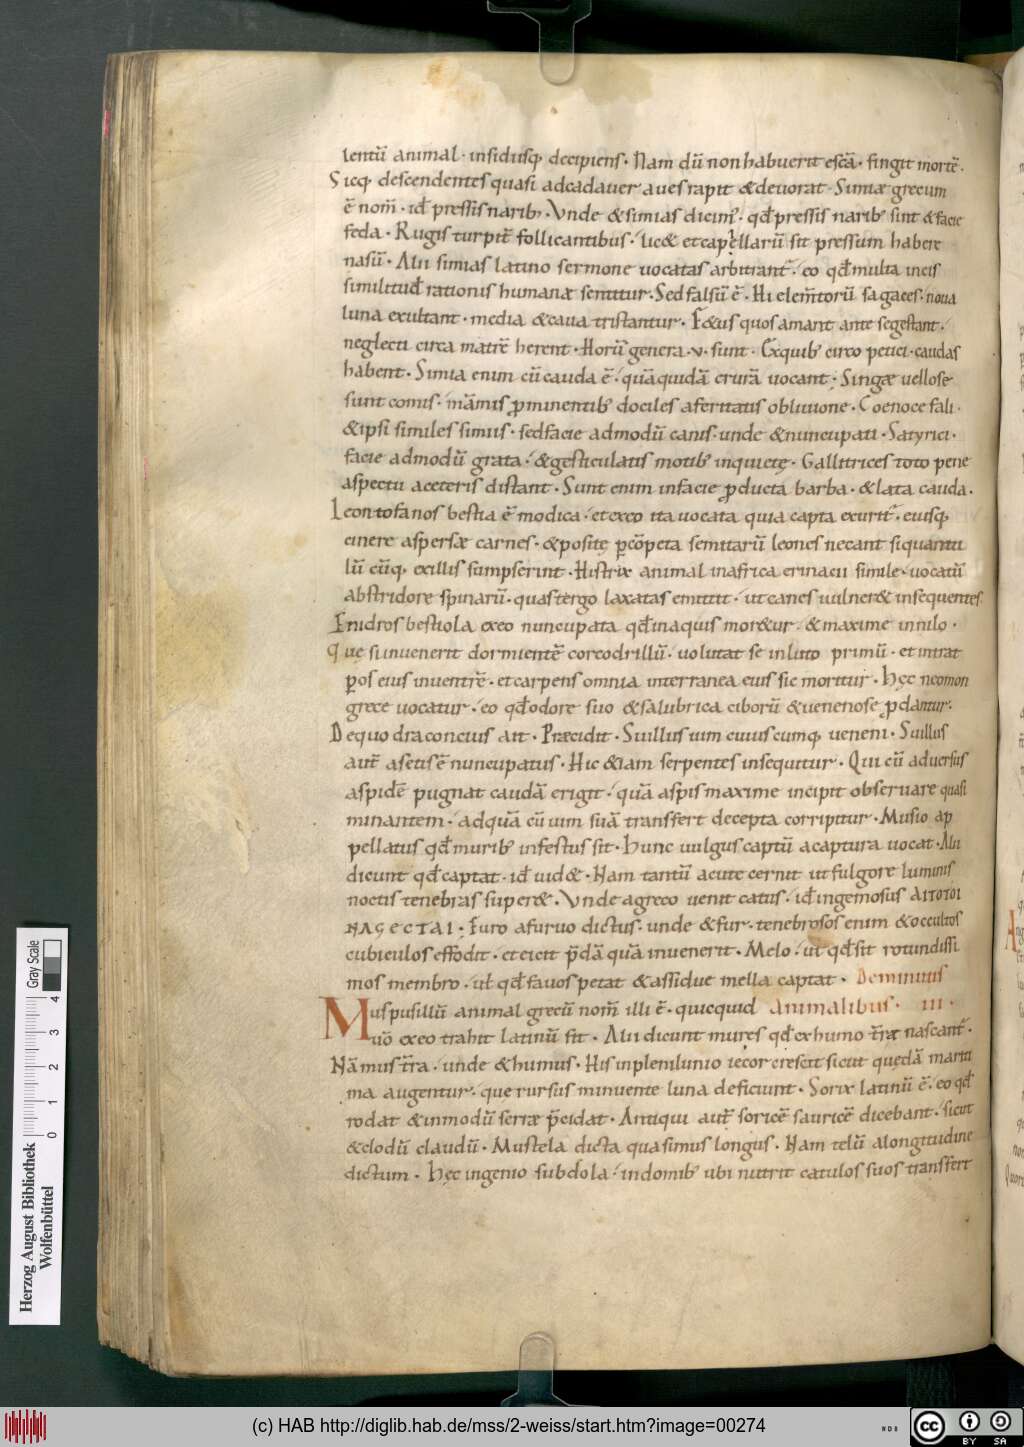 lentū animal · insidiisq; decipiens · Nam dū non habuerit escā · fingit mortē ·
Sicq; descendentes quasi ad cadauer aues rapit & deuorat · Simiæ grecum
ē nom̄ · id̄ pressis narib; · Vnde & simias dicim; · qd̄ pressis narib; sint & facie
feda · Rugis turpit̄ follicantibus · lic& et capellarū sit pressum habere
nasū · Alii simias latino sermone uocatas arbitrant̄ · eo qd̄ multa in eis
similitud̄ rationis humanæ sentitur · Sed falsū ē · Hi elem̄torū sagaces · noua
luna exultant · media & caua tristantur · F&us quos amant ante se gestant ·
neglecti circa matrē herent · Horū genera · v · sunt · Ex quib; circo petici · caudas
habent · Simia enim cū cauda ē · quā quidā clurā uocant · Singæ uellose
sunt comis · māmis p̱minentib; dociles a feritatis obliuione · Coenocefali ·
& ipsi similes simiis · sed facie ad modū canis · unde & nuncupati · Satyrici ·
facie admodū grata · & gesticulatis motib; inquietę · Gallitrices toto pene
aspectu a ceteris distant · Sunt enim in facie p̱ducta barba · & lata cauda ·
Leontofanos bestia ē modica · et ex eo ita uocata quia capta exurit̄ · eiusq;
cinere aspersæ carnes · & positę p̱ cōpeta semitarū leones necant si quantu
lū cūq; ex illis sumpserint · Histrix animal in africa erinacii simile · uocatū
ab stridore spinarū · quas tergo laxatas emittit · ut canes uulner& insequentes
Enidros bestiola ex eo nuncupata qd̄ in aquis mor&ur · & maxime in nilo ·
Quę si inuenerit dormientē corcodrillū · uolutat se in luto primū · et intrat
p̱ os eius in uentrē · et carpens omnia interranea eius sic moritur · Hęc neomon
grece uocatur · eo qd̄ odore suo & salubrica ciborū & uenenose p̱dantur ·
De quo draconcius ait · Præcidit · Suillus uim cuiuscumq; ueneni · Suillus
aut̄ a setis ē nuncupatus · Hic &iam serpentes insequitur · Qui cū aduersus
aspidē pugnat caudā erigit · quā aspis maxime incipit obseruare quasi
minantem · ad quā cū uim suā transfert decepta corripitur · Musio ap
pellatus qd̄ murib; infestus sit · Hunc uulgus captū a captura uocat · Alii
dicunt qd̄ captat · id̄ uid& · Nam tantū acute cernit ut fulgore luminis
noctis tenebras super& · Vnde a greco uenit catus · id̄ ingeniosus ΑΙΤΟΤΟΙ
ΝΑϚΕCΤΑΙ · Furo a furuo dictus · unde & fur · tenebrosos enim & occultos
cubiculos effodit · et eicit p̄dā quā inuenerit · Melo · ut̄ qd̄ sit rotundissi
mos membro · ut̄ qd̄ fauos petat & assidue mella captat · De minutis
Mus pusillū animal grecū nom̄ illi ē · quicquid animalibus · III ·
uō ex eo trahit latinū fit · Alii dicunt mures qd̄ ex humo t̄ræ nascant̄ ·
Nā mus t̄ra · unde & humus · His in plenilunio iecor crescit sicut quędā mariti
ma augentur · que rursus minuente luna deficiunt · Sorix latinū ē · eo qd̄
rodat & in modū serræ p̄cidat · Antiqui aut̄ soricē sauricē dicebant · sicut
& clodū claudū · Mustela dicta quasi mus longus · Nam telū a longitudine
dictum · Hęc ingenio subdola · in domib; ubi nutrit catulos suos transfert
Herzog August Bibliothek
Wolfenbüttel
0 1 2 3 4
Gray Scale
(c) HAB http://diglib.hab.de/mss/2-weiss/start.htm?image=00274
cc BY SA